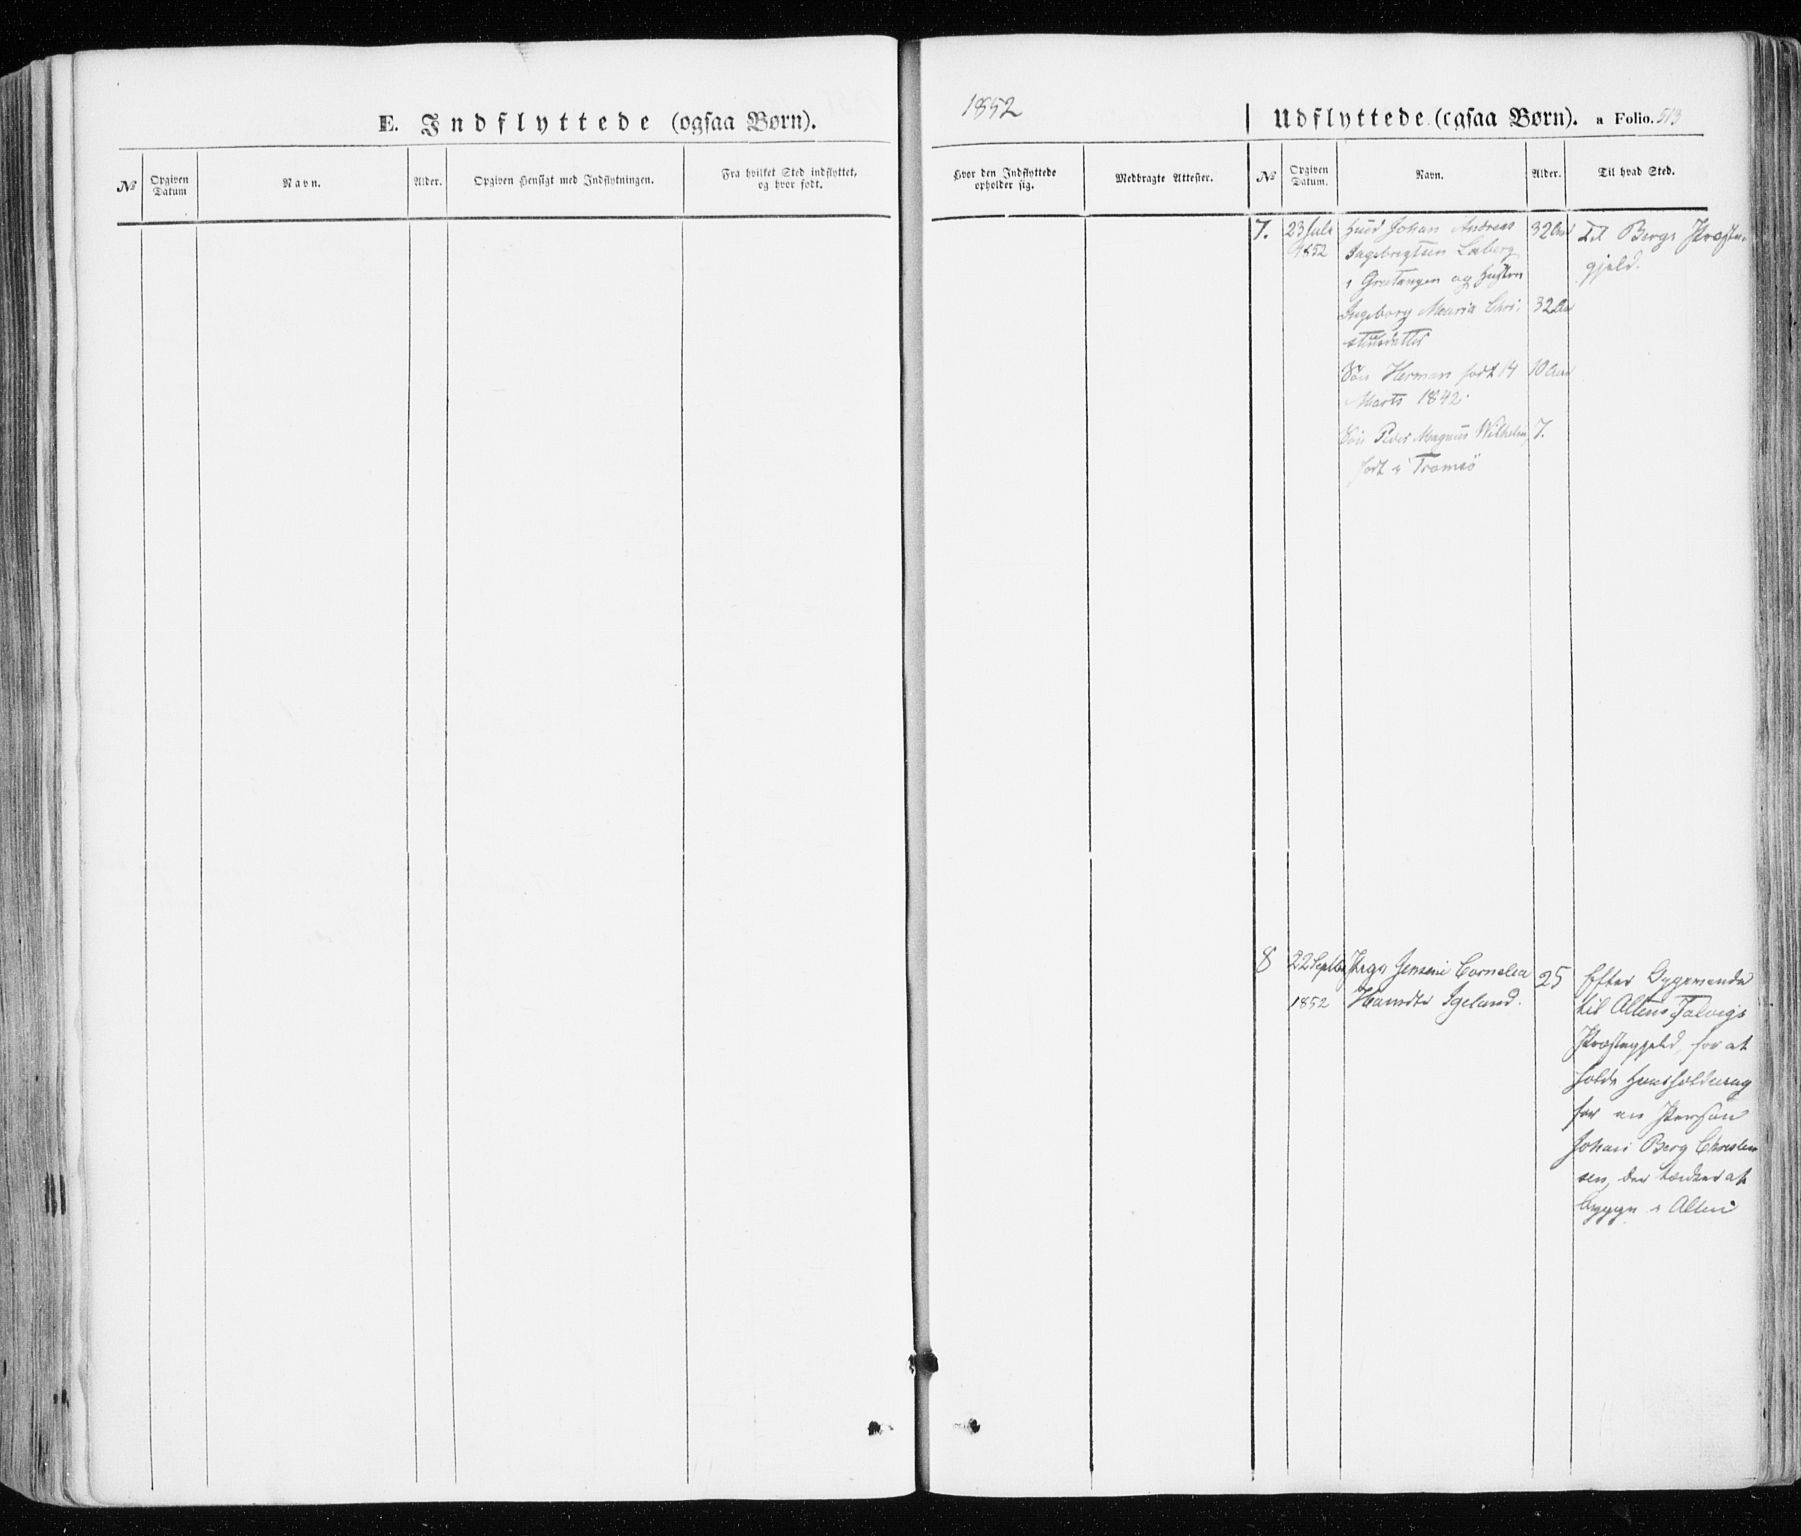 E. Indflyttede (ogsaa Børn).
1852
Udflyttede (ogsaa Børn). a Folio. 513
№
Opgiven Datum
Navn.
Alder.
Opgiven Hensigt med Indflytningen.
Fra hvilket Sted indflyttet, og hvor født.
Hvor den Indflyttede opholder sig.
Medbragte Attester.
№
Opgiven Datum.
Navn.
Alder.
Til hvad Sted.
7. 23 Juli Johan Andreas 32 Aar Til Bergs Præste-
1852 Ingebrigtsen gjeld.
i Gratangen og Hustru
Ingeborg Maria Chri- 32 Aar
stensdatter
Søn Herman født 14 10 Aar
Marts 1842.
Søn Peder Magnus Wilhelm, 7.
født i Tromsø
8 22 Septbr Pige Jensine Cornelia 25 Efter
1852 Hansdtr Igeland. til Altens Talvigs
Præstegjeld, for at
holde
for en Person
Johan Berg Christen-
sen, der tænker at
bygge i Alten